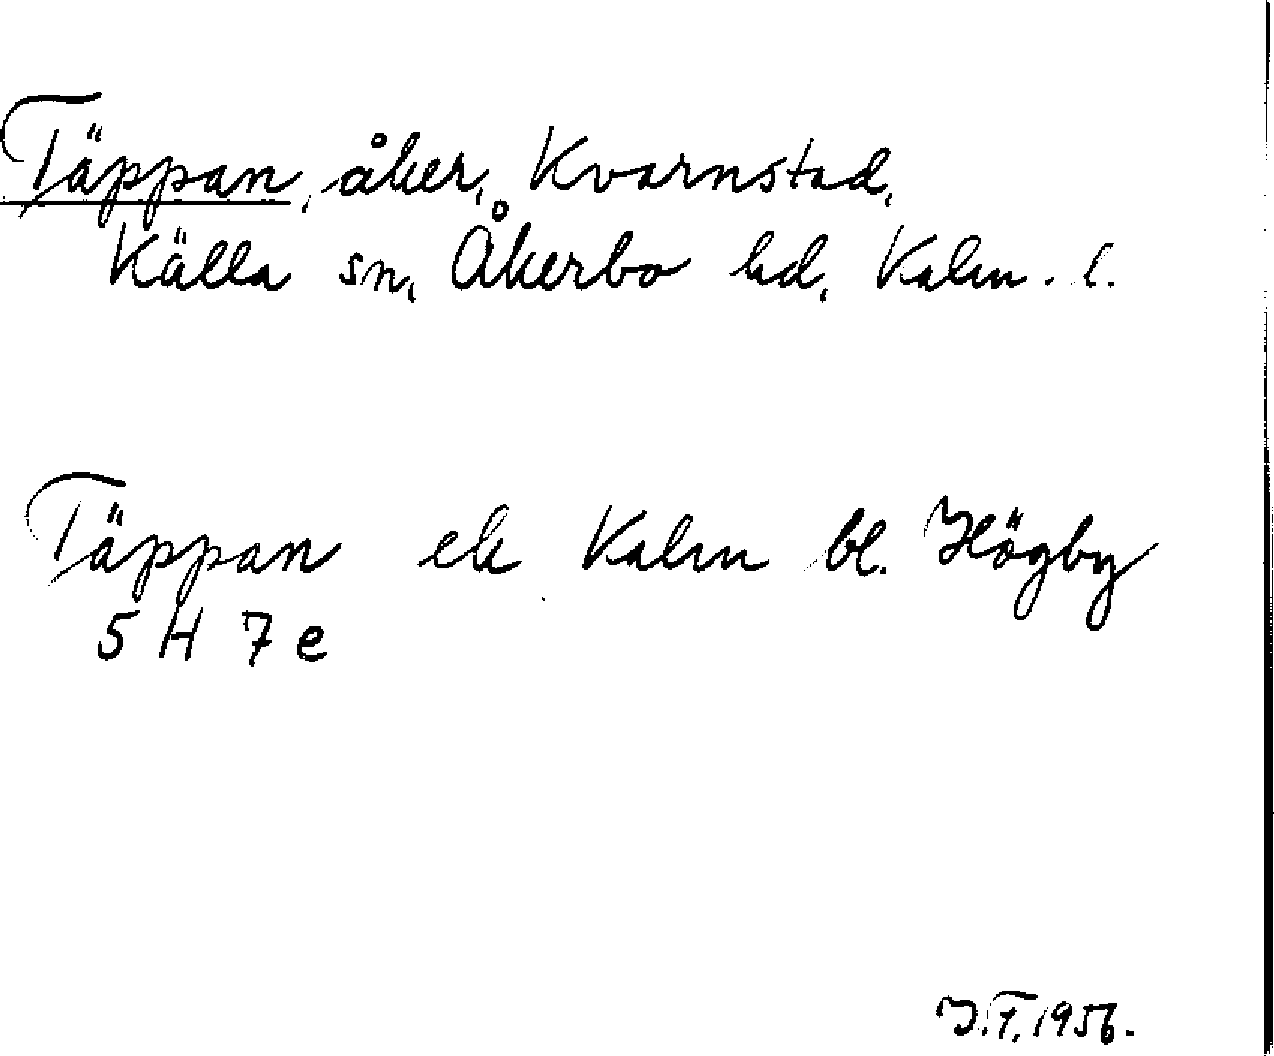 Täppan, åker, Kvarnstad,
Källa sn, Åkerbo hd, Kalm. l.
Täppan ek Kalm bl. Högby
5 H 7 e
1956.